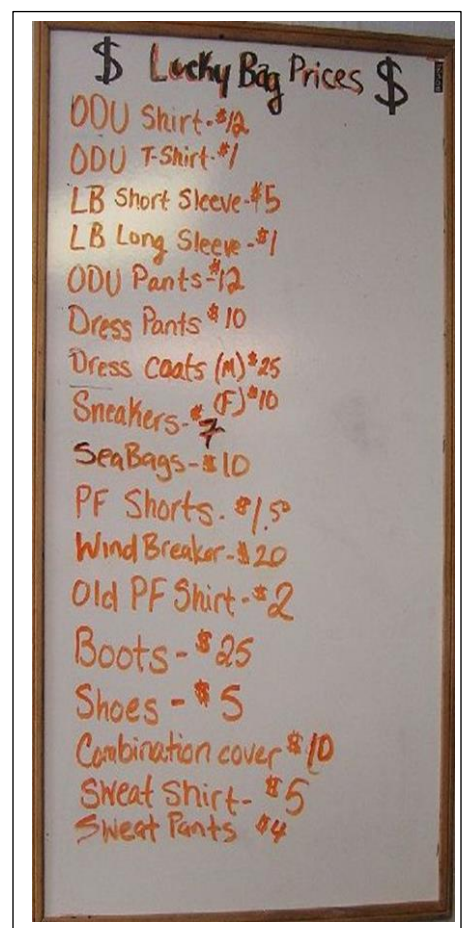 $ Lucky Bag Prices $
ODU Shirt-$12
ODU T-Shirt-$1
LB Short Sleeve-$5
LB Long Sleeve-$1
ODU Pants-$12
Dress Pants $10
Dress Coats (M) $25
(F) $10
Sneakers-$7
SeaBags-$10
PF Shorts-$1.50
WindBreaker-$20
Old PF Shirt-$2
Boots-$25
Shoes-$5
Combination cover $10
Sweat Shirt-$5
Sweat Pants $4